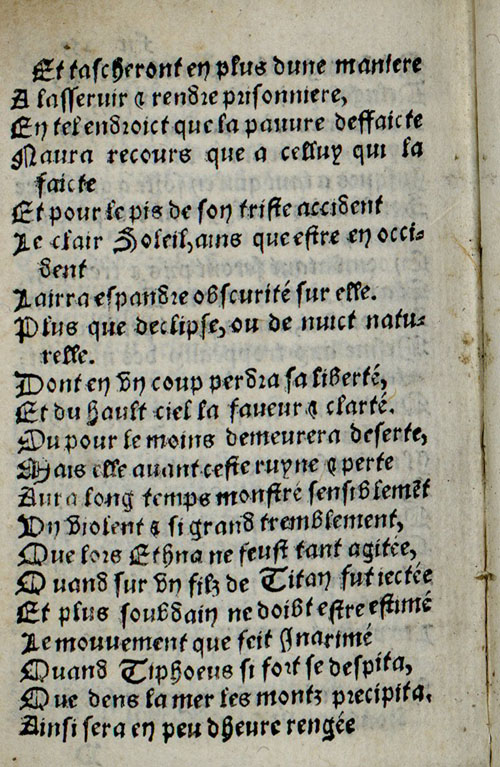 Et tascheront en plus dune maniere
A lasseruir & rendre prisonniere,
En tel endroict que la pauure deffaicte
Naura recours que a celluy qui la
faicte
Et pour le pis de son triste accident
Le clair Soleil, ains que estre en occi-
dent
Lairra espandre obscurité sur elle.
Plus que declipse, ou de nuict natu-
relle.
Dont en vn coup perdra sa liberté,
Et du hault ciel la faueur & clarté.
Ou pour le moins demeurera deserte,
Mais elle auant ceste ruyne & perte
Aura long temps monstré sensiblemẽt
Vn violent & si grand tremblement,
Que lors Ethna ne feust tant agitée,
Quand sur vn filz de Titan fut iectée
Et plus soubdain ne doibt estre estimé
Le mouuement que feit Inarimé
Quand Tiphoeus si fort se despita,
Que dens la mer les montz precipita.
Ainsi sera en peu dheure rengée